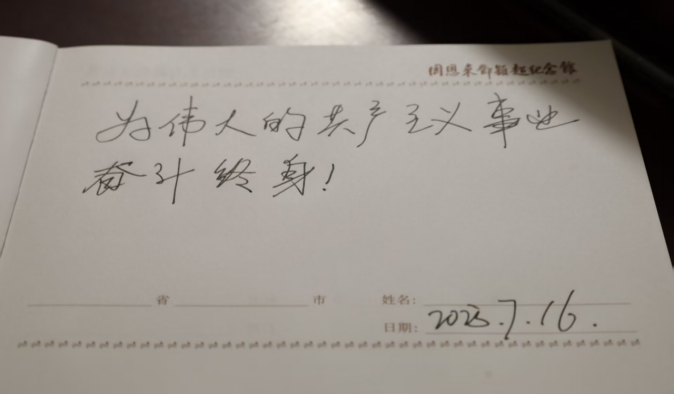 周恩来邓颖超纪念馆
为伟人的共产主义事业
奋斗终身!
省 市 姓名:
日期: 2023.7.16.